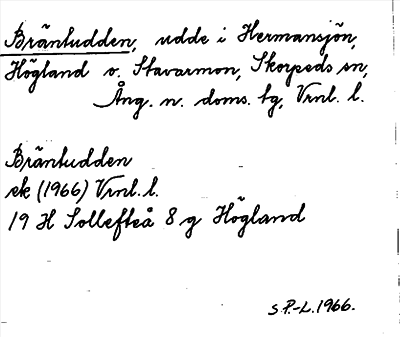 Bräntudden, udde i Hermansjön,
Högland o. Stavarmon, Skorpeds sn,
Ång. n. doms. tg, Vrnl. l.
Bräntudden
ek (1966) Vrnl. l.
19 H Sollefteå 8 g Högland
S.P.-L. 1966.